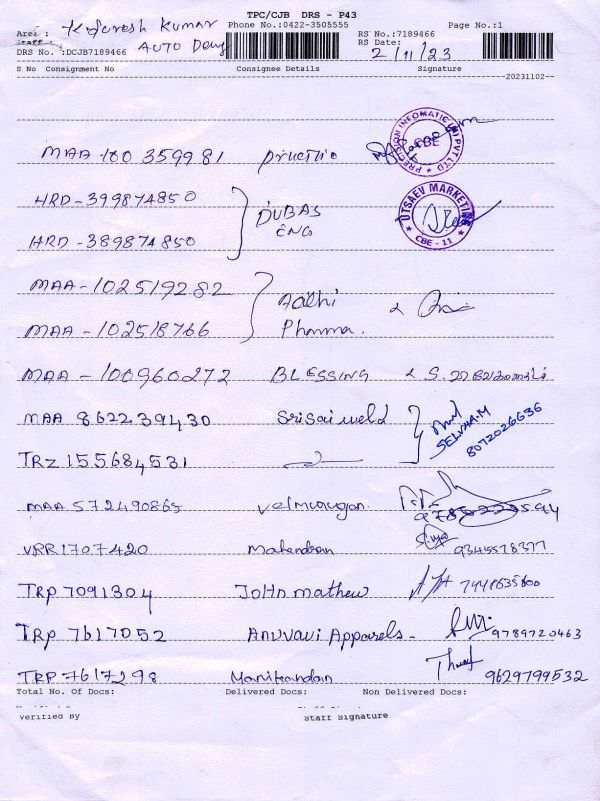 TPC/CJB DRS - P43
Area : Kjforesh Kumar Phone No.:0422-3505555 Page No.:1
Staff: RS No.:7189466
DRS No. :DCJB7189466 AUTO Dewy RS Date: 2/11/23
S No Consignment No Consignee Details Signature
20231102
PRECISION INFOMATIC (M) PVT LTD
MAA-100 359981 CBE
HRD-399874850 DUBAS UTSAEV MARKETING
ENG CBE - 11
HRD-389874850
MAA-102519282 Aadhi
MAA-102518766 Pharma.
MAA-100960272 BLESSING
MAA 862239430 Srisai weld SELVHA.M
8072026636
TRZ 155684531
MAA 572490865 Velmurugan
VRR1707420 Mahendran 9345578377
TRP 7091304 John mathew
TRP 7617052 Anuvavi Apparels- 9789720463
TRP 7617298 Manikandan 9629799532
Total No. Of Docs: Delivered Docs: Non Delivered Docs:
Verified By Staff Signature